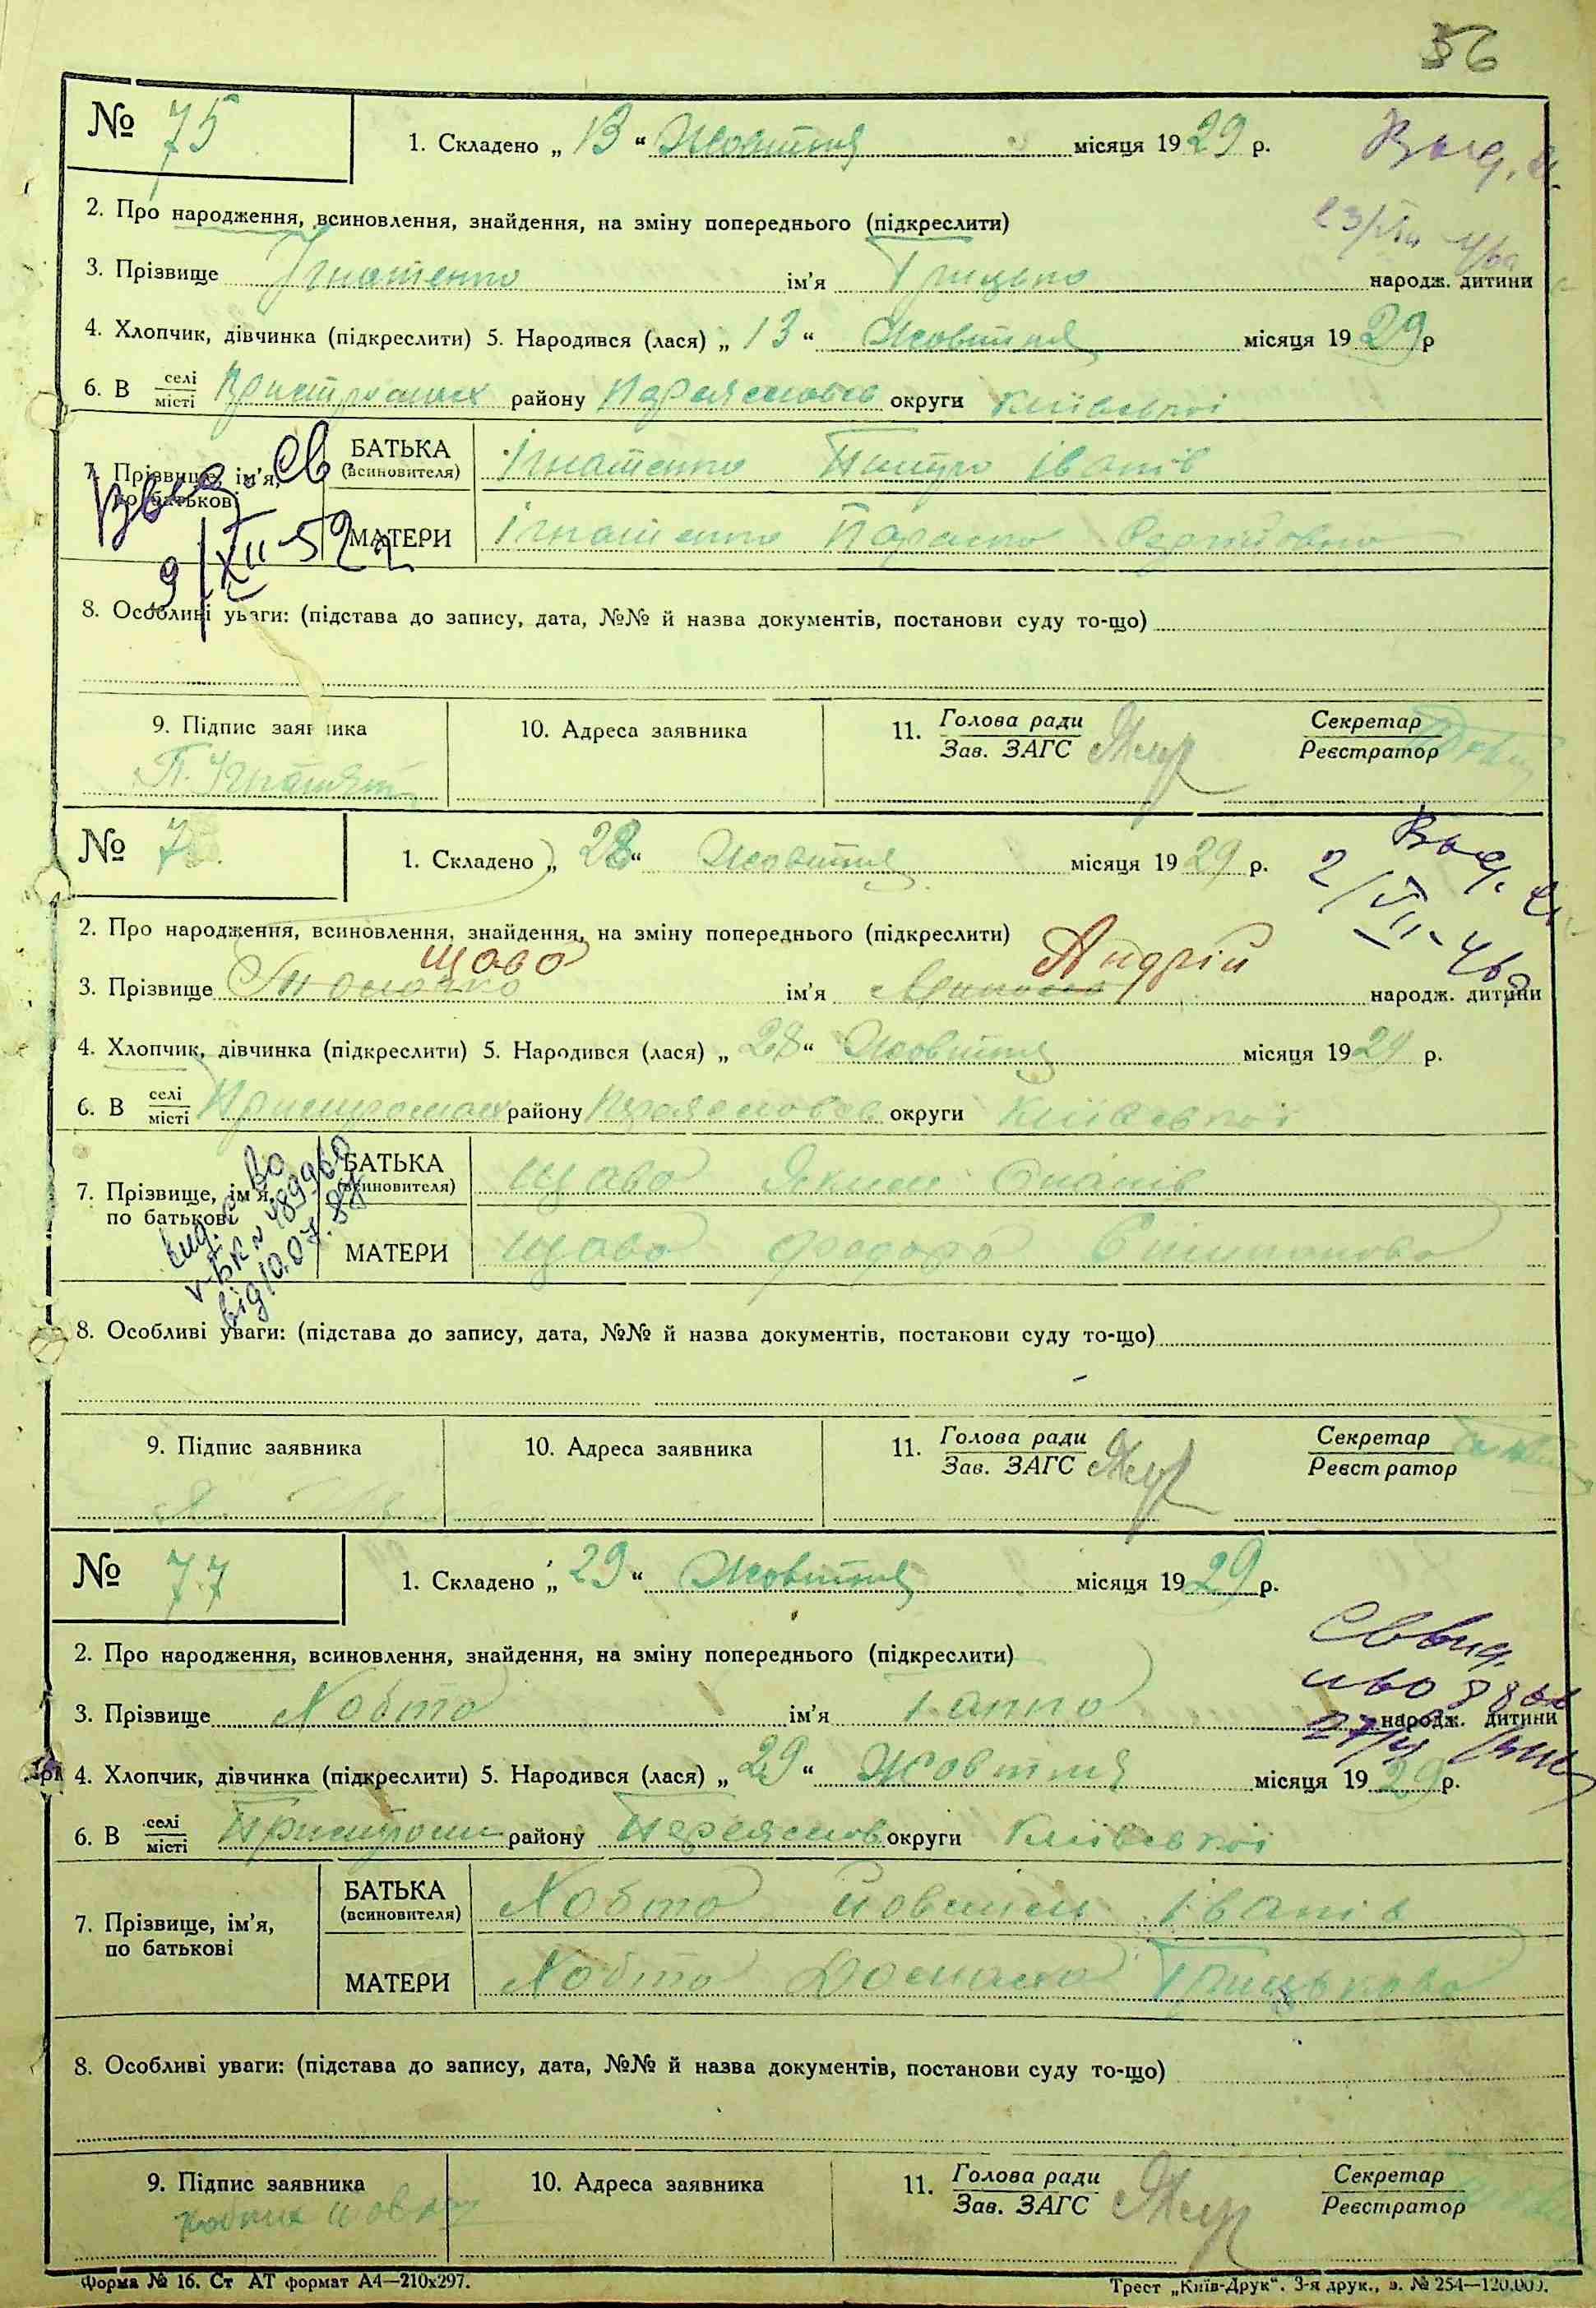 36
№ 75
1. Складено „ 13 “ Жовтня місяця 1929 р.
2. Про народження, всиновлення, знайдення, на зміну попереднього (підкреслити)
3. Прізвище Ігнатенко ім’я Грицько народж. дитини
4. Хлопчик, дівчинка (підкреслити) 5. Народився (лася) „ 13 “ Жовтня місяця 1929 р
6. В селі місті Пристромах району Переяслово округи Київської
7. Прізвище, ім’я, по батькові
БАТЬКА (всиновителя) Ігнатенко Петро Іванів
МАТЕРИ Ігнатенко Параско
9/XII-52
8. Особливі уваги: (підстава до запису, дата, №№ й назва документів, постанови суду то-що)
9. Підпис заявника
10. Адреса заявника
11. Голова ради Зав. ЗАГС
Секретар Реєстратор
П. Ігнатен
№ 7
1. Складено „ 28 “ Жовтня місяця 1929 р.
Выд.
2. Про народження, всиновлення, знайдення, на зміну попереднього (підкреслити)
Щаво Андрій
3. Прізвище ім’я народж. дитини
4. Хлопчик, дівчинка (підкреслити) 5. Народився (лася) „ 28 “ Жовтня місяця 1929 р.
6. В селі місті Пристромах району Переяслово округи Київської
7. Прізвище, ім’я, по батькові
БАТЬКА (всиновителя) Щаво Яким
МАТЕРИ Щаво Федора
від 10.07.
8. Особливі уваги: (підстава до запису, дата, №№ й назва документів, постанови суду то-що)
9. Підпис заявника
10. Адреса заявника
11. Голова ради Зав. ЗАГС
Секретар Реєстратор
№ 77
1. Складено „ 29 “ Жовтня місяця 1929 р.
2. Про народження, всиновлення, знайдення, на зміну попереднього (підкреслити)
3. Прізвище Хобто ім’я Ганно народж. дитини
4. Хлопчик, дівчинка (підкреслити) 5. Народився (лася) „ 29 “ Жовтня місяця 1929 р.
6. В селі місті Пристроми району Переяслов округи Київської
7. Прізвище, ім’я, по батькові
БАТЬКА (всиновителя) Хобто Іванів
МАТЕРИ Хобто Домаха Грицькова
8. Особливі уваги: (підстава до запису, дата, №№ й назва документів, постанови суду то-що)
9. Підпис заявника
10. Адреса заявника
11. Голова ради Зав. ЗАГС
Секретар Реєстратор
Форма № 16. Ст АТ формат А4—210х297.
Трест „Київ-Друк“. 3-я друк., з. № 254—120.000.